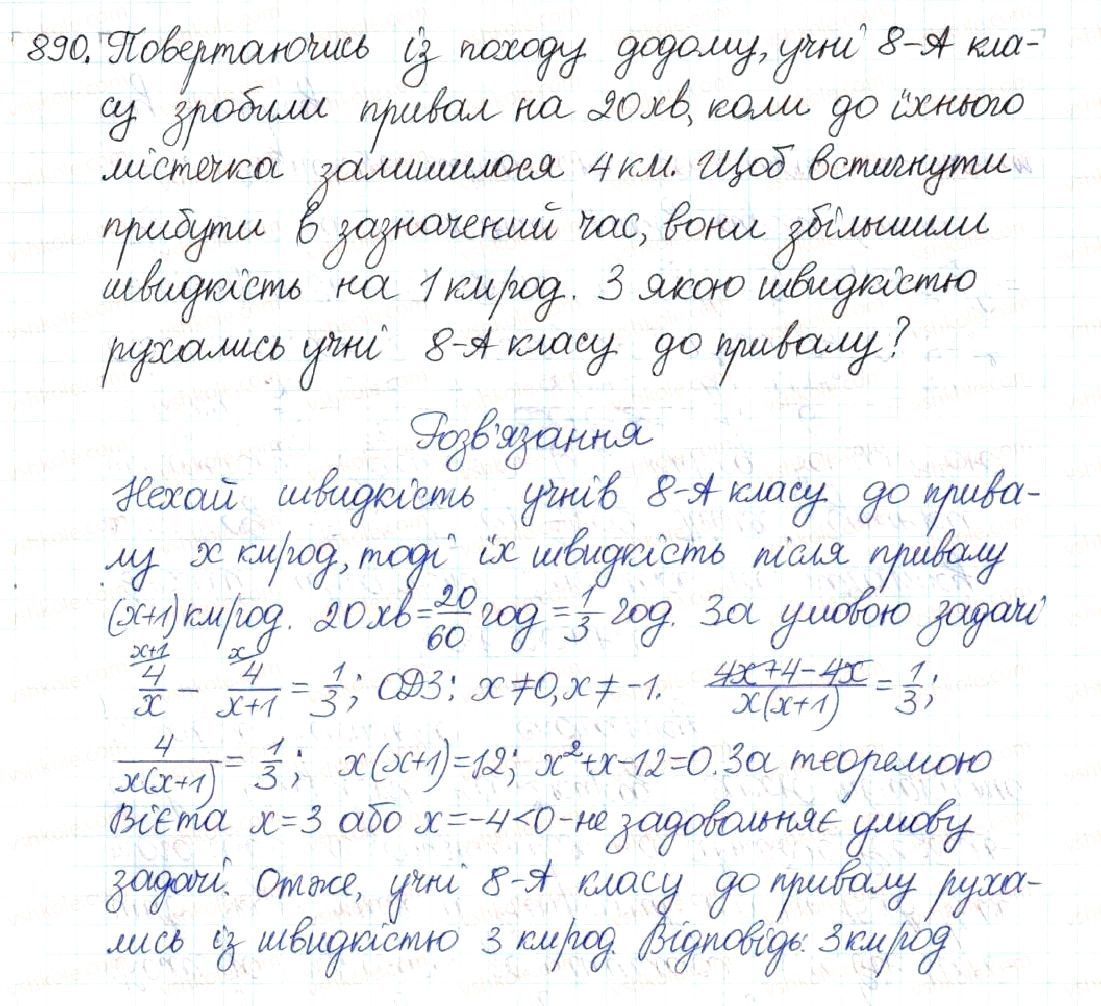 890. Повертаючись із походу додому, учні 8-А кла-
су зробили привал на 20хв, коли до їхнього
містечка залишилося 4 км. Щоб встигнути
прибути в зазначений час, вони збільшили
швидкість на 1 км/год. З якою швидкістю
рухались учні 8-А класу до привалу?
Розв'язання
Нехай швидкість учнів 8-А класу до прива-
лу x км/год, тоді їх швидкість після привалу
(x+1) км/год. 20хв = 20/60 год = 1/3 год. За умовою задачі
x+1 x
4/x - 4/(x+1) = 1/3; ОДЗ: x≠0, x≠-1. (4x+4-4x)/(x(x+1)) = 1/3;
4/(x(x+1)) = 1/3; x(x+1)=12; x²+x-12=0. За теоремою
Вієта x=3 або x=-4<0-не задовольняє умову
задачі. Отже, учні 8-А класу до привалу руха-
лись із швидкістю 3 км/год. Відповідь: 3км/год